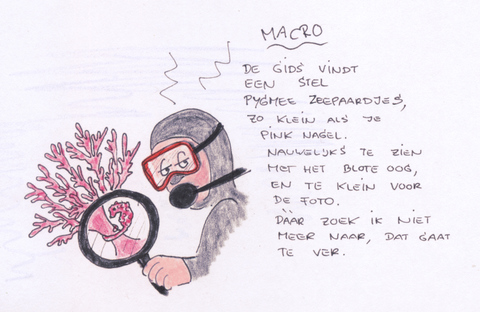 MACRO
DE GIDS VINDT
EEN STEL
PYGMEE ZEEPAARDJES,
ZO KLEIN ALS JE
PINK NAGEL.
NAUWELIJKS TE ZIEN
MET HET BLOTE OOG,
EN TE KLEIN VOOR
DE FOTO.
DÀÀR ZOEK IK NIET
MEER NAAR, DAT GAAT
TE VER.